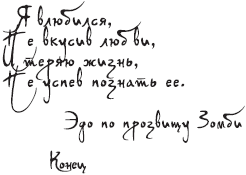 Я влюбился,
Не вкусив любви,
И теряю жизнь,
Не успев познать ее.
Эдо по прозвищу Зомби
Конец